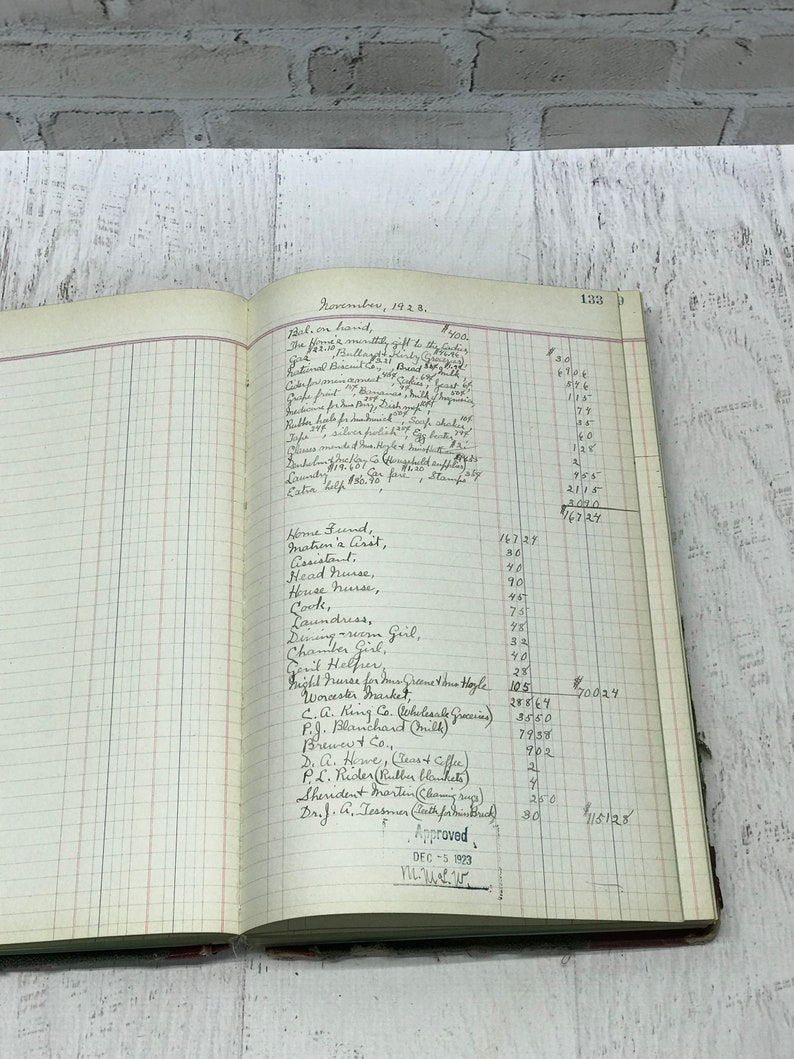 133 9
November, 1923.
Bal. on hand, $400.
The Home's monthly gift to the Ladies, $30
Gas $22.10, Bullard & Kirby (Groceries) $46.96, 6906
National Biscuit Co., $3.21 Bread 32¢, Milk 546
Cider for mincemeat, 45¢ Cookies, 64¢ Yeast 6¢, 115
Grape fruit 15¢, Bananas, Milk of Magnesia 50¢ 74
Medicine for Mrs. Dish mop, 10¢ 35
Rubber heels for 50¢, Soap shaker, 10¢ 60
Tape 24¢, silver polish 25¢, Egg beater, 79¢ 128
Glasses mended Mrs. Hoyle & $2. 2
Denholm & McKay Co. (Household supplies) 455
Laundry $19.60, Car fare, $1.20 Stamps 35¢ 2115
Extra help $30.90, 3090
$16724
Home Fund, 16724
Matron's Asst, 30
Assistant, 40
Head Nurse, 90
House Nurse, 45
Cook, 75
Laundress, 48
Dining-room Girl, 32
Chamber Girl, 40
Gen'l Helper, 28
Night Nurse for Mrs. Greene & Mrs. Hoyle 105 $70024
Worcester Market, 28864
C. A. King Co. (Wholesale Groceries) 3550
P. J. Blanchard (Milk) 7938
Brewer & Co., 902
D. A. Howe, (Teas & Coffee) 2
P. L. Rider (Rubber blankets) 4
Sheriden & Martin (Cleaning rugs) 250
Dr. J. A. Tessmer (Teeth for Miss Brick) 30 $115128
Approved
DEC -5 1923